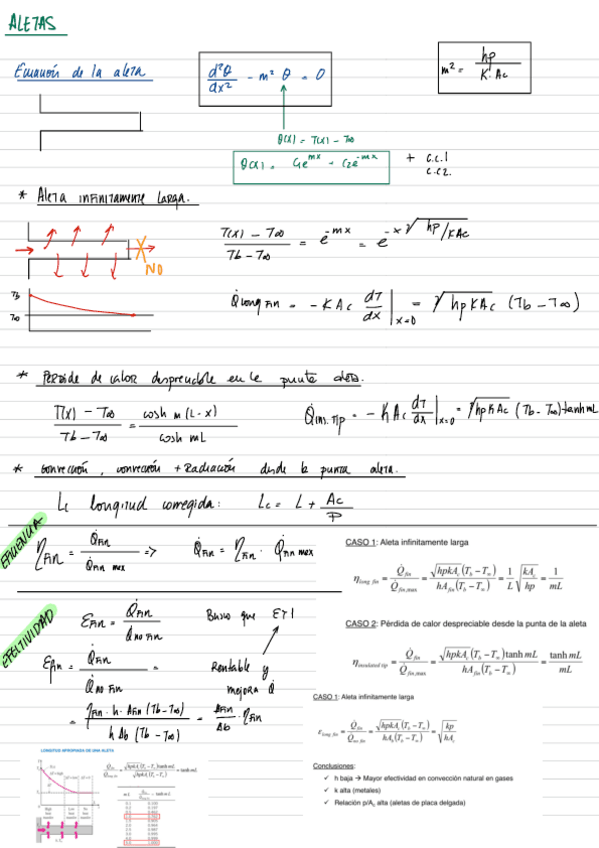 ALETAS
Ecuación de la aleta
d²θ/dx² - m² θ = 0
m² = hp / K · Ac
θ(x) = T(x) - T∞
θ(x) = C₁e^mx + C₂e^-mx
+ C.C.1
C.C.2.
* Aleta infinitamente larga.
NO
Tb
T∞
T(x) - T∞ / Tb - T∞ = e^-mx = e^-x√hp/KAc
Q̇long fin = - K Ac dT/dx |x=0 = √hpKAc (Tb - T∞)
* Pérdida de calor despreciable en la punta aleta.
T(x) - T∞ / Tb - T∞ = cosh m (L - x) / cosh mL
Q̇ins. tip = - K Ac dT/dx |x=0 = √hpKAc (Tb - T∞) tanh mL
* Convección, convección + Radiación desde la punta aleta.
Lc longitud corregida: Lc = L + Ac/P
EFICIENCIA
ηFin = Q̇Fin / Q̇Fin max => Q̇Fin = ηFin · Q̇Fin max
CASO 1: Aleta infinitamente larga
η long fin = Q̇fin / Q̇fin,max = √hpkAc (Tb - T∞) / hAfin (Tb - T∞) = 1/L √kAc/hp = 1/mL
CASO 2: Pérdida de calor despreciable desde la punta de la aleta
η insulated tip = Q̇fin / Q̇fin,max = √hpkAc (Tb - T∞) tanh mL / hAfin (Tb - T∞) = tanh mL / mL
EFECTIVIDAD
εFin = Q̇Fin / Q̇no Fin
Busco que ε↑1
Rentable y
mejora Q̇
εfin = Q̇Fin / Q̇no Fin =
= ηFin · h · AFin (Tb - T∞) / h Ab (Tb - T∞) = AFin/Ab · ηFin
CASO 1: Aleta infinitamente larga
ε long fin = Q̇fin / Q̇no fin = √hpkAc (Tb - T∞) / hAb (Tb - T∞) = √kp/hAc
Conclusiones:
✓ h baja → Mayor efectividad en convección natural en gases
✓ k alta (metales)
✓ Relación p/Ac alta (aletas de placa delgada)
LONGITUD APROPIADA DE UNA ALETA